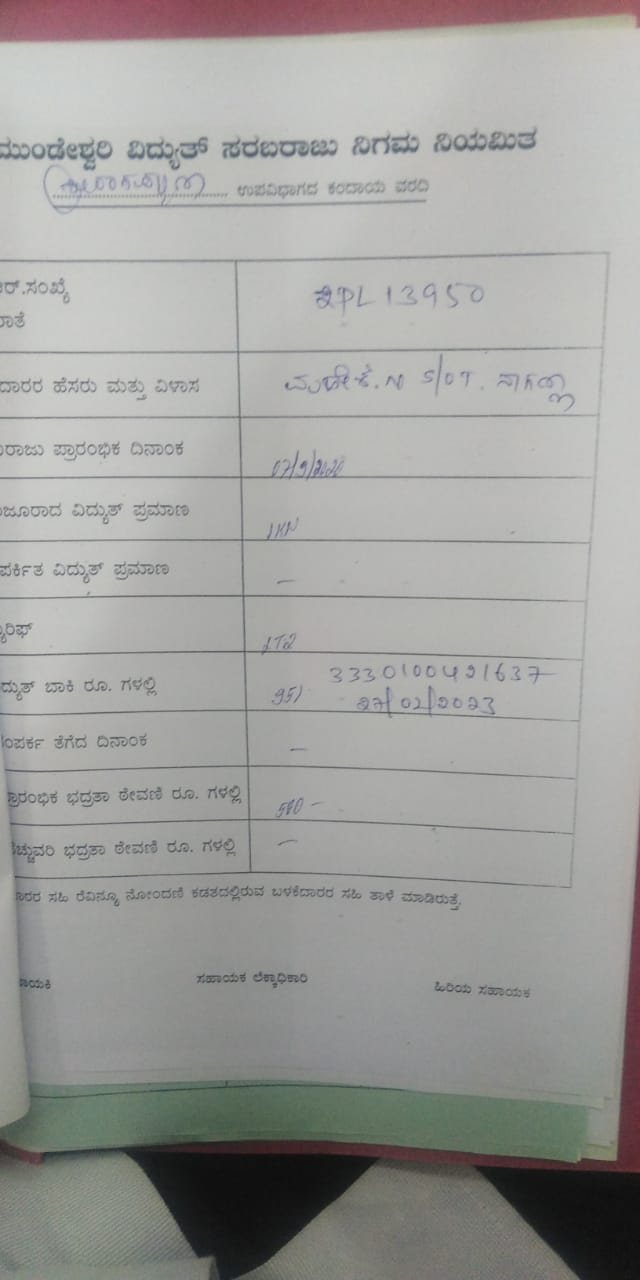 ಮುಂಡೇಶ್ವರಿ ವಿದ್ಯುತ್ ಸರಬರಾಜು ನಿಗಮ ನಿಯಮಿತ
ಉಪವಿಭಾಗದ ಕಂದಾಯ ವರದಿ
ಆರ್.ಸಂಖ್ಯೆ
ಖಾತೆ
2PL 13950
ದಾರರ ಹೆಸರು ಮತ್ತು ವಿಳಾಸ
ಮಹೇಶ್.N S/OT. ನಾಗಣ್ಣ
ರಾಜು ಪ್ರಾರಂಭಿಕ ದಿನಾಂಕ
07/9/2020
ಜೂರಾದ ವಿದ್ಯುತ್ ಪ್ರಮಾಣ
1KW
ಪರ್ಕಿತ ವಿದ್ಯುತ್ ಪ್ರಮಾಣ
–
ಯಾರಿಫ್
LT2
ದ್ಯುತ್ ಬಾಕಿ ರೂ. ಗಳಲ್ಲಿ
951
3330100421637
27/02/2023
ಂಪರ್ಕ ತೆಗೆದ ದಿನಾಂಕ
–
ಪ್ರಾರಂಭಿಕ ಭದ್ರತಾ ಠೇವಣಿ ರೂ. ಗಳಲ್ಲಿ
500 –
ಹೆಚ್ಚುವರಿ ಭದ್ರತಾ ಠೇವಣಿ ರೂ. ಗಳಲ್ಲಿ
–
ದಾರರ ಸಹಿ ರೆವಿನ್ಯೂ ನೋಂದಣಿ ಕಡತದಲ್ಲಿರುವ ಬಳಕೆದಾರರ ಸಹಿ ತಾಳೆ ಮಾಡಿರುತ್ತೆ.
ಾಯಕಿ ಸಹಾಯಕ ಲೆಕ್ಕಾಧಿಕಾರಿ ಹಿರಿಯ ಸಹಾಯಕ